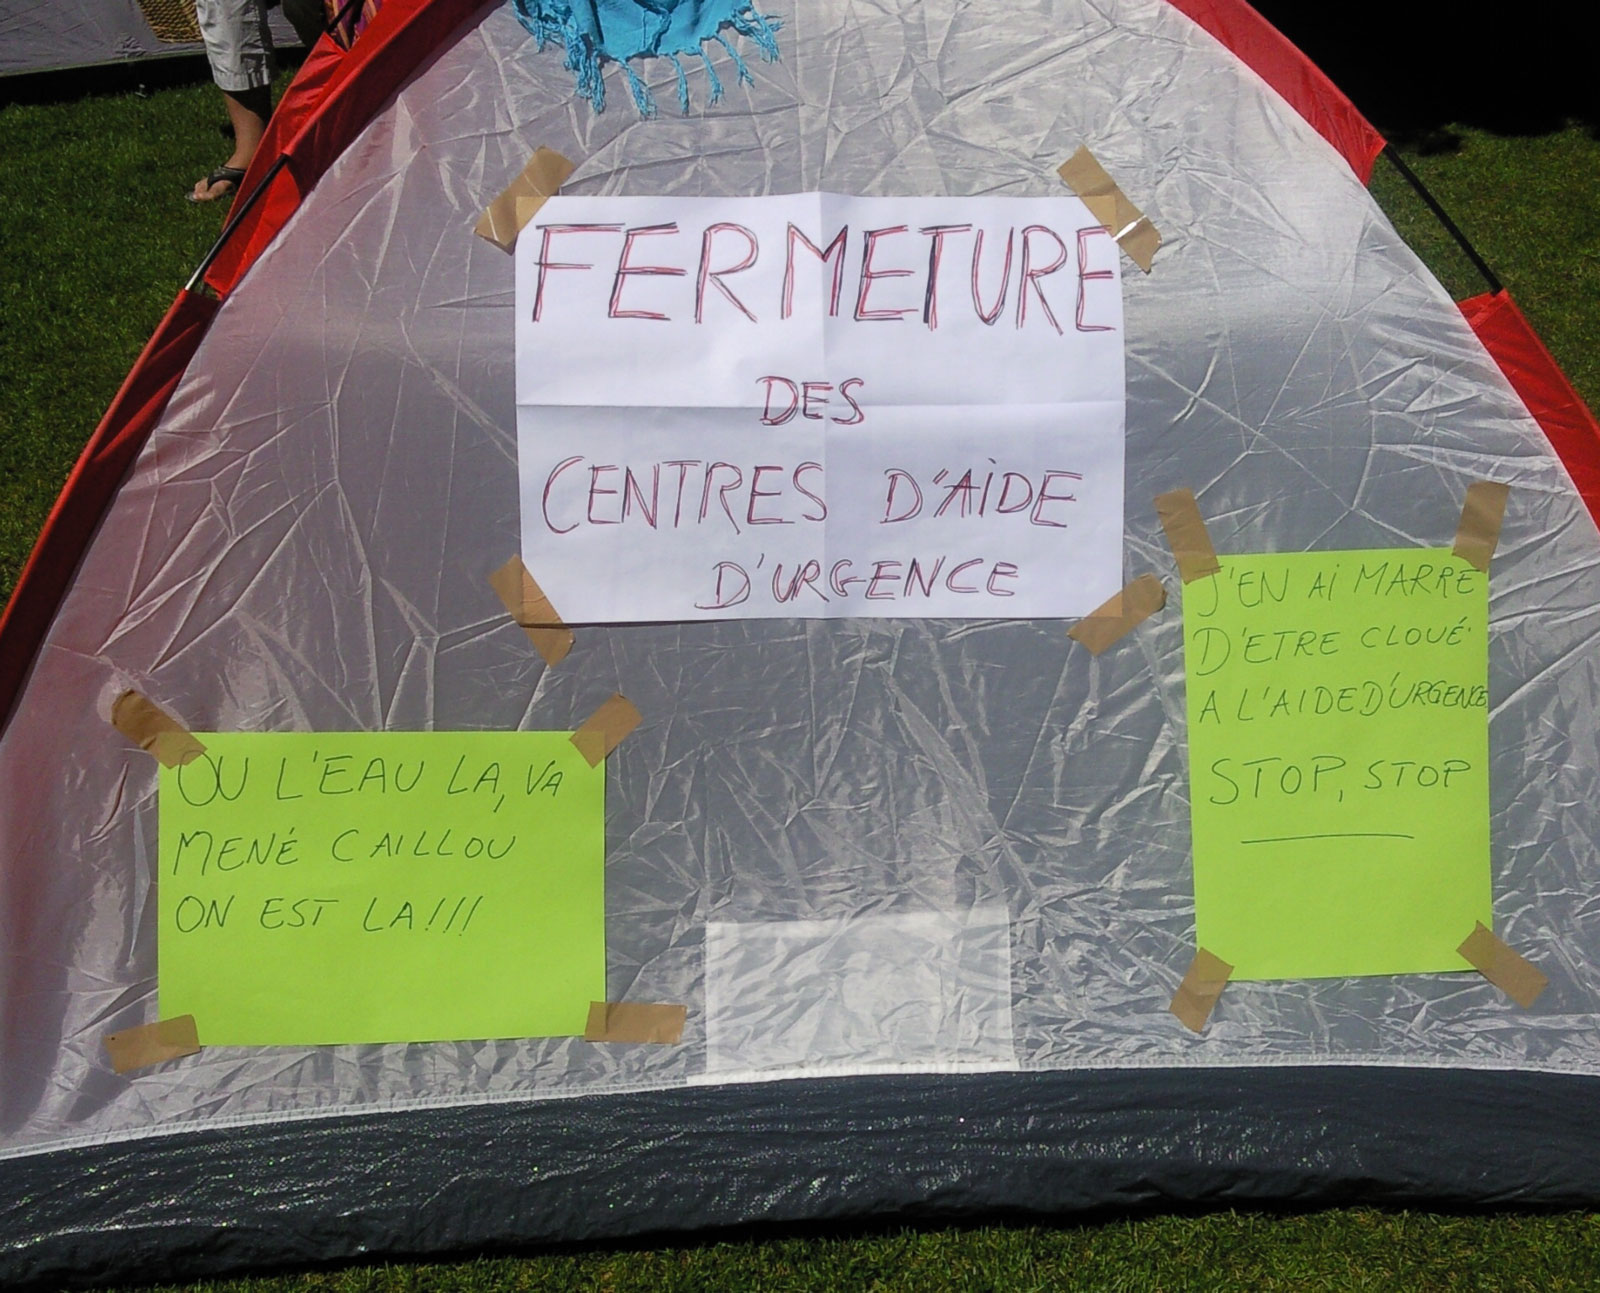 FERMETURE
DES
CENTRES D'AIDE
D'URGENCE
J'EN AI MARRE
D'ETRE CLOUÉ
A L'AIDE D'URGENCE
STOP, STOP
OU L'EAU LA, VA
MENÉ CAILLOU
ON EST LA!!!